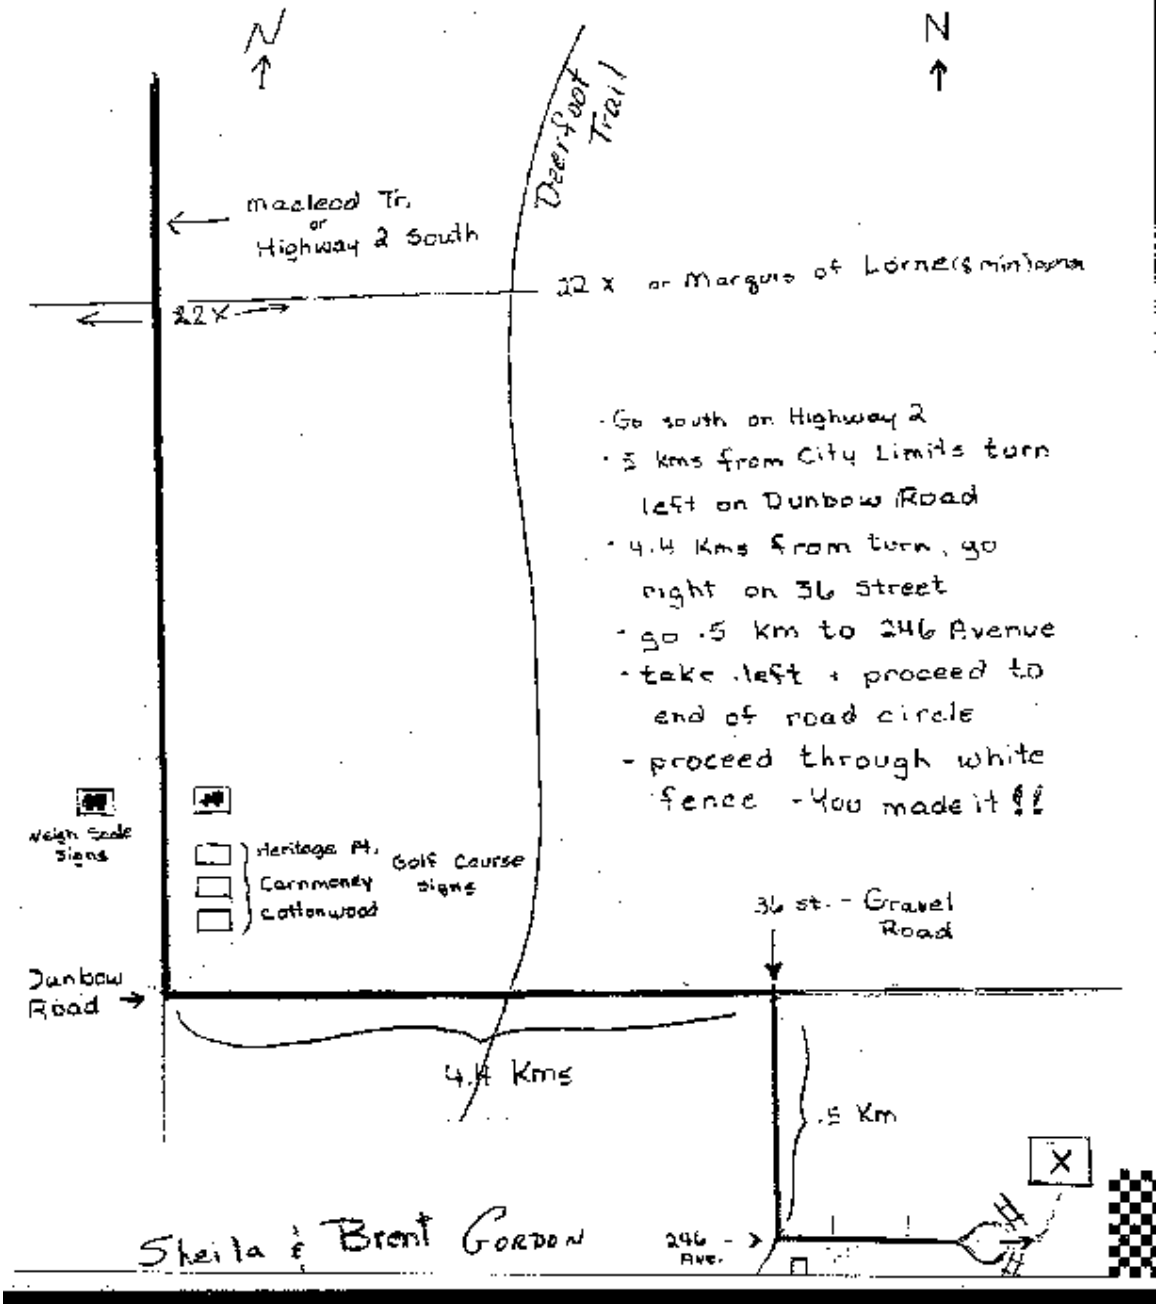 N
N
Deerfoot
Trail
macleod Tr.
or
Highway 2 South
22 X or Marquis of Lorne
22X
- Go south on Highway 2
- 5 kms from City Limits turn
left on Dunbow Road
- 4.4 Kms from turn, go
right on 36 Street
- go .5 km to 246 Avenue
- take left + proceed to
end of road circle
- proceed through white
fence - You made it !!
Weigh Scale
Signs
Heritage Pt.
Carnmoney
Cottonwood
Golf Course
Signs
36 st. - Gravel
Road
Dunbow
Road
4.4 Kms
.5 Km
X
246
Ave.
Sheila & Brent GORDON